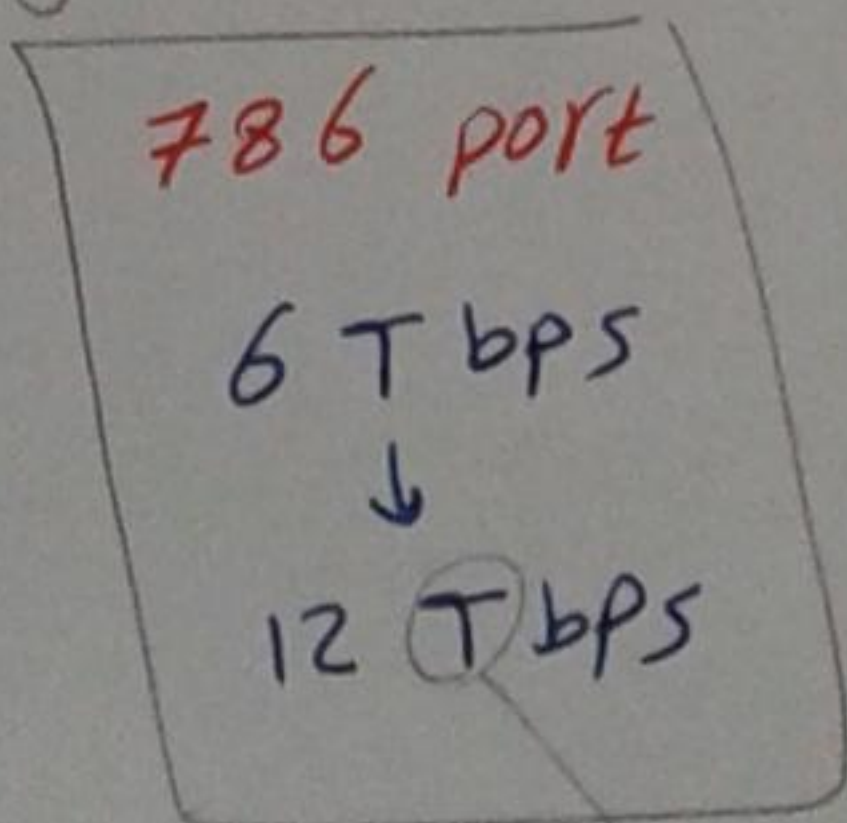 786 port
6 Tbps
↓
12 Tbps